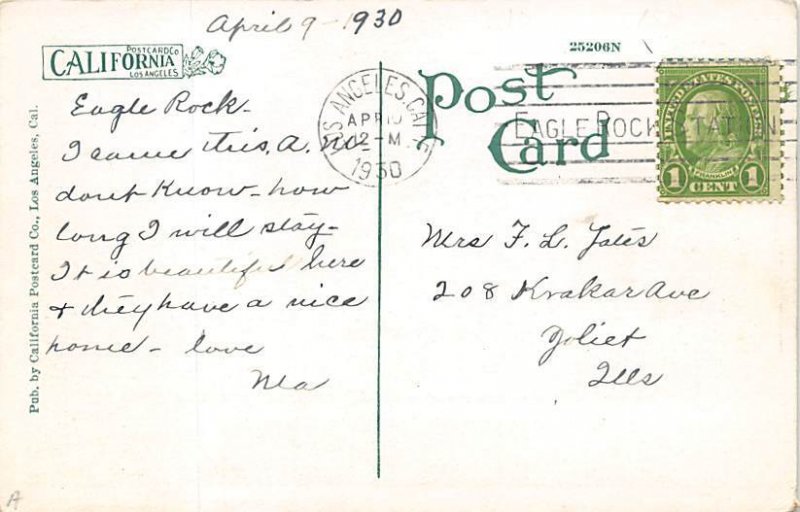 April 9 - 1930
CALIFORNIA
POSTCARD Co
LOS ANGELES
Eagle Rock -
I came this. A. M.
dont know - how
long I will stay -
It is beautiful here
& they have a nice
home - love
Ma
Pub. by California Postcard Co., Los Angeles, Cal.
LOS ANGELES, CALIF.
APR 10
12 - M
1930
Post
Card
25206N
EAGLE ROCK STATION
UNITED STATES POSTAGE
FRANKLIN
1 CENT 1
Mrs F. L. Yates
208 Krakar Ave
Joliet
Ills
A